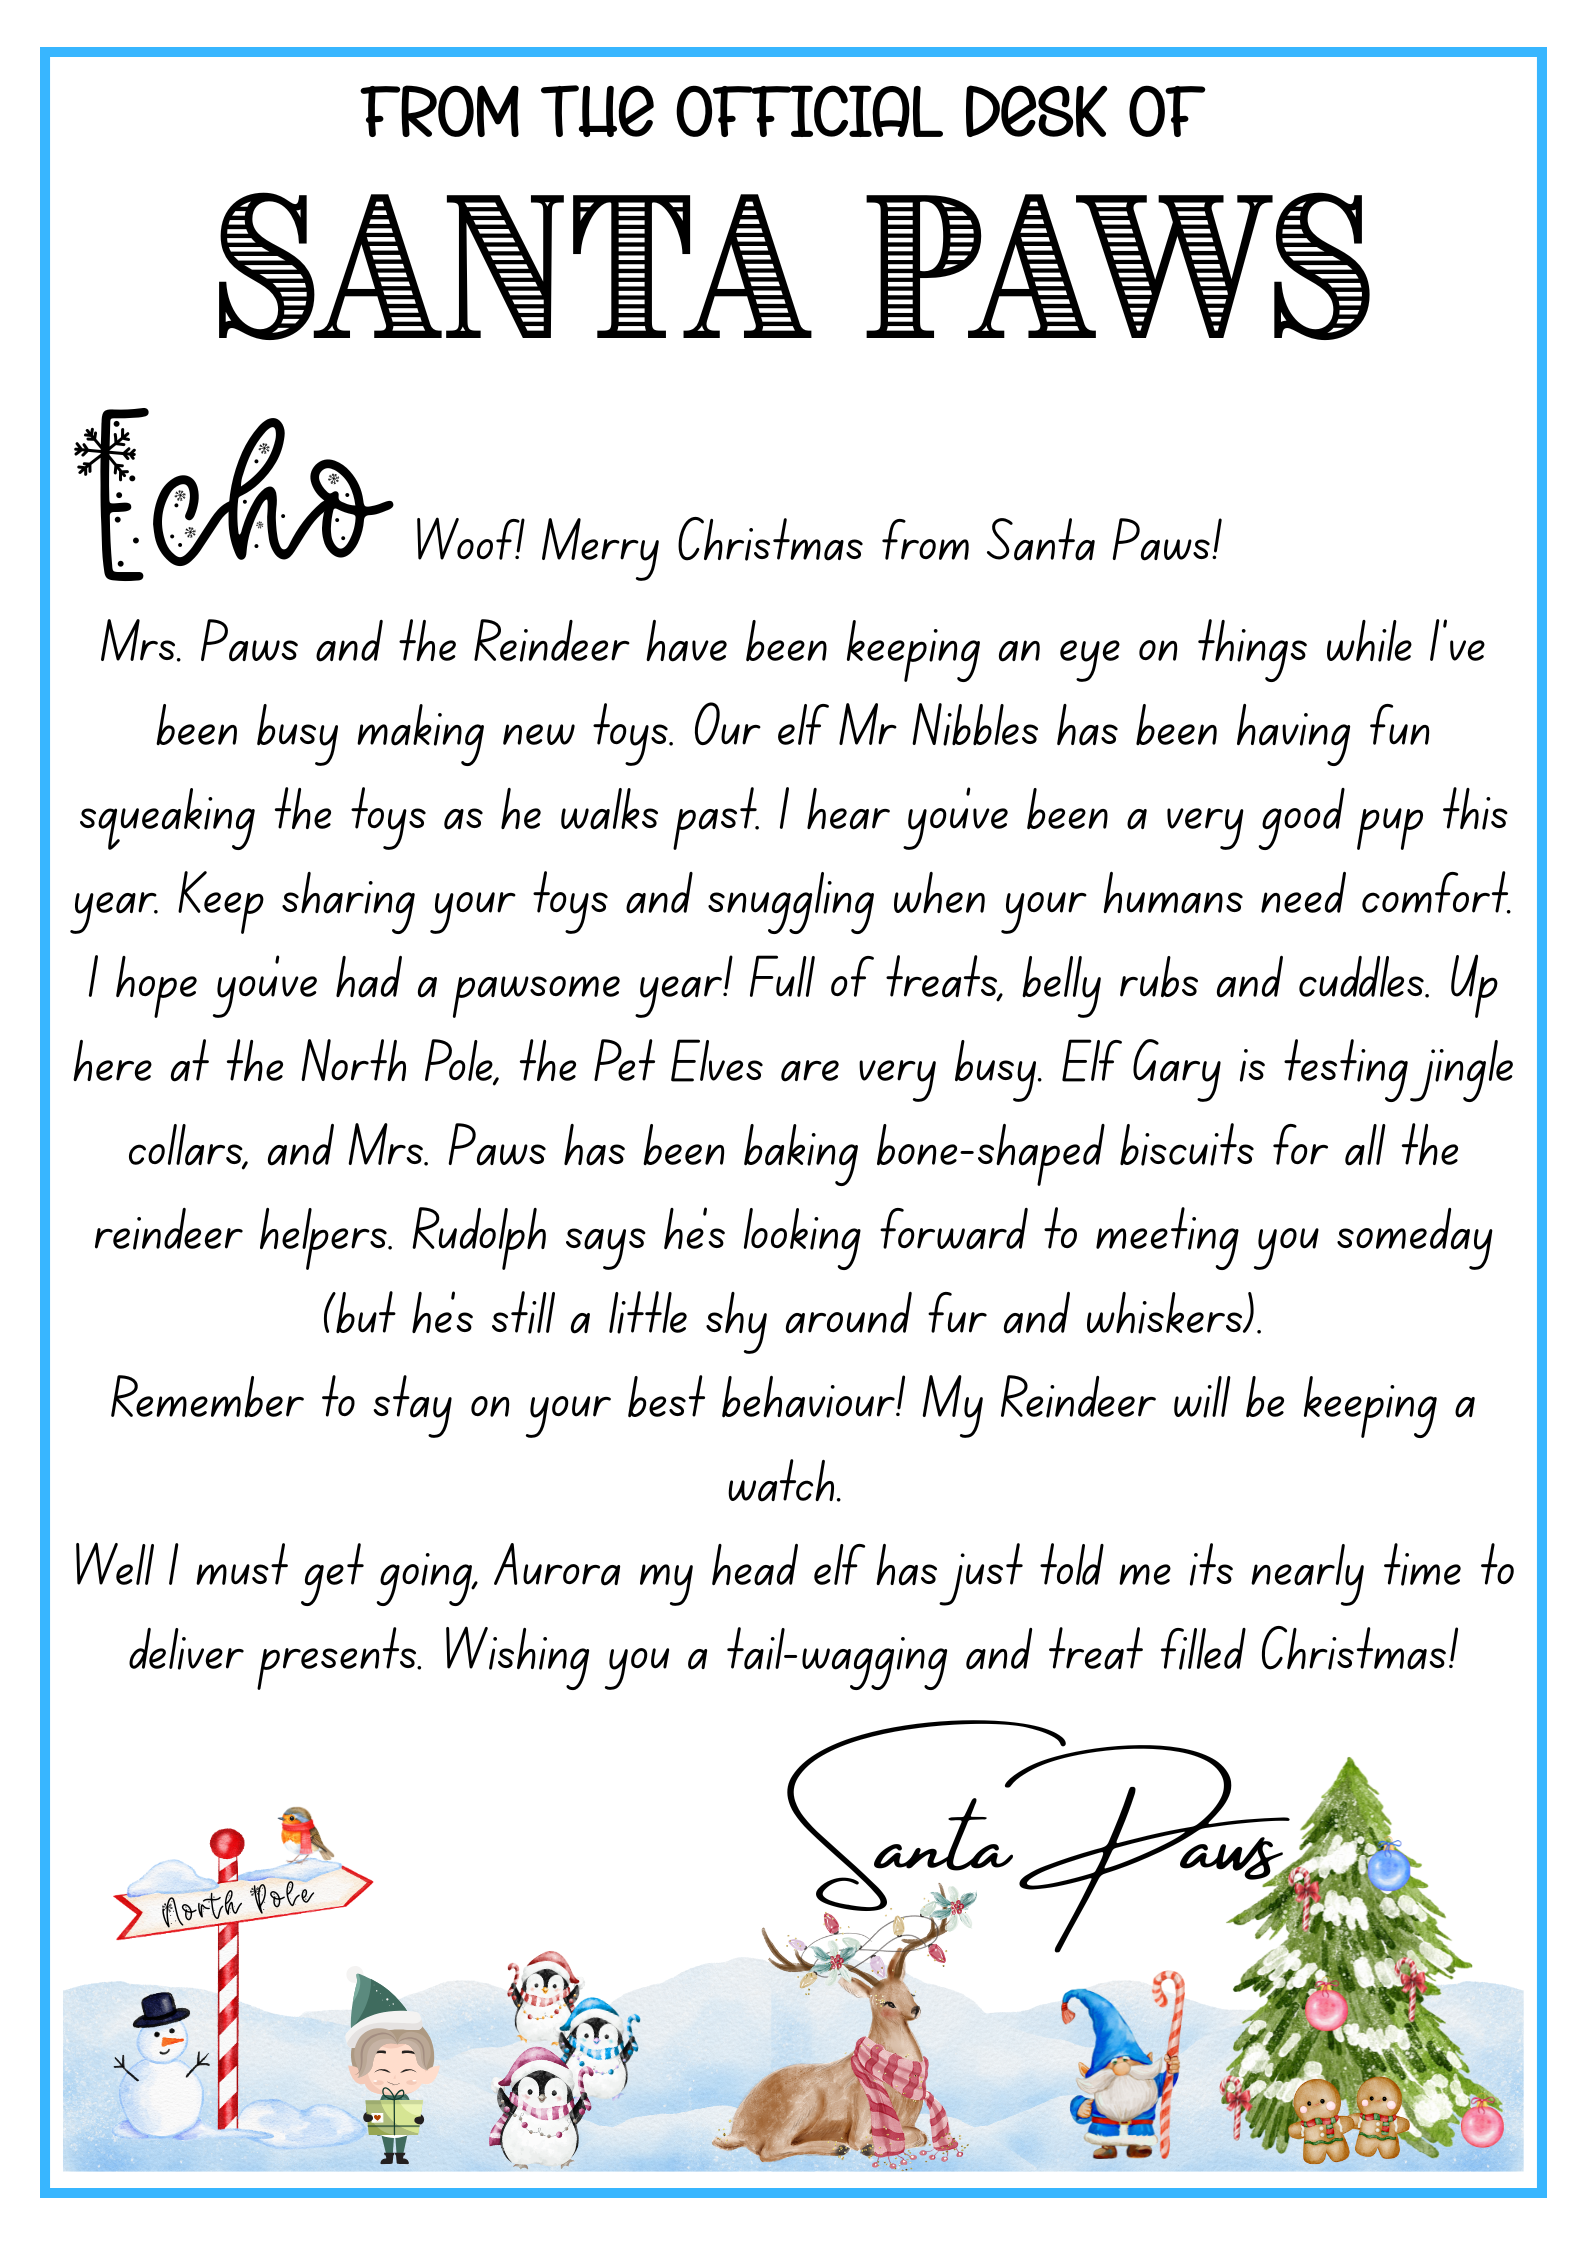 FROM THE OFFICIAL DESK OF
SANTA PAWS
Echo Woof! Merry Christmas from Santa Paws!
Mrs. Paws and the Reindeer have been keeping an eye on things while I've
been busy making new toys. Our elf Mr Nibbles has been having fun
squeaking the toys as he walks past. I hear you've been a very good pup this
year. Keep sharing your toys and snuggling when your humans need comfort.
I hope you've had a pawsome year! Full of treats, belly rubs and cuddles. Up
here at the North Pole, the Pet Elves are very busy. Elf Gary is testing jingle
collars, and Mrs. Paws has been baking bone-shaped biscuits for all the
reindeer helpers. Rudolph says he's looking forward to meeting you someday
(but he's still a little shy around fur and whiskers).
Remember to stay on your best behaviour! My Reindeer will be keeping a
watch.
Well I must get going, Aurora my head elf has just told me its nearly time to
deliver presents. Wishing you a tail-wagging and treat filled Christmas!
Santa Paws
North Pole